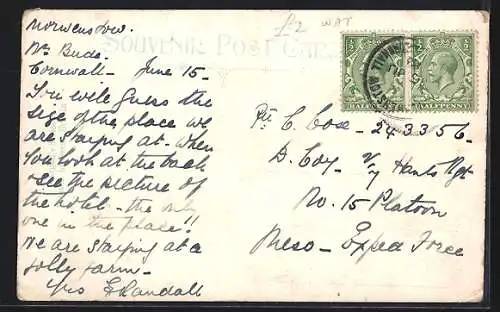 Morwenstow.
Nr. Bude.
Cornwall - June 15 -
You will guess the
size of the place we
are staying at - when
you look at the back
& see the picture of
the hotel - the only
one in the place!!
We are staying at a
jolly farm -
yrs E Randall
£2 WAR
SOUVENIR POST CARD
HALFPENNY HALFPENNY
Pte C. Cox - 243356 -
D. Coy - Hants Rgt
No. 15 Platoon
Meso - Exped Force